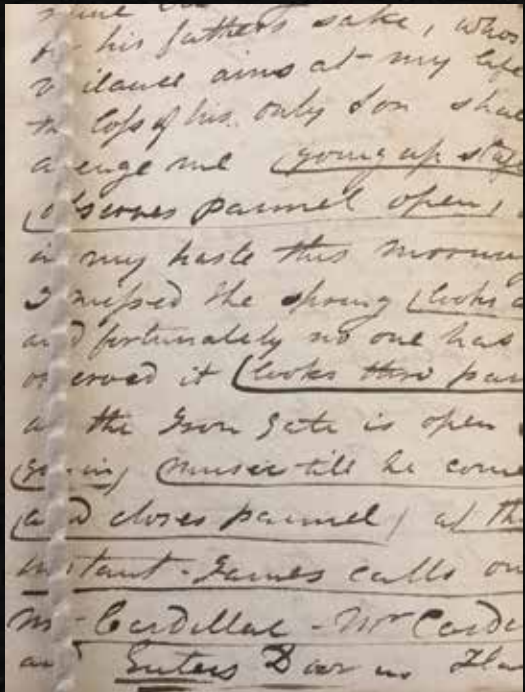 his fathers sake, whos
ilance aims at my life
th loss of his only Son shal
a enge me (going up stage
(o serves pannel open)
in my haste this morning
I missed the spring (looks
an d fortunately no one has
o erved it (looks thro pan
a the Iron Gate is open
(go in) (music till he come
(a d closes pannel) at th
in tant - James calls ou
Mr Cardillac - Mr Cardi
an Enters Door in